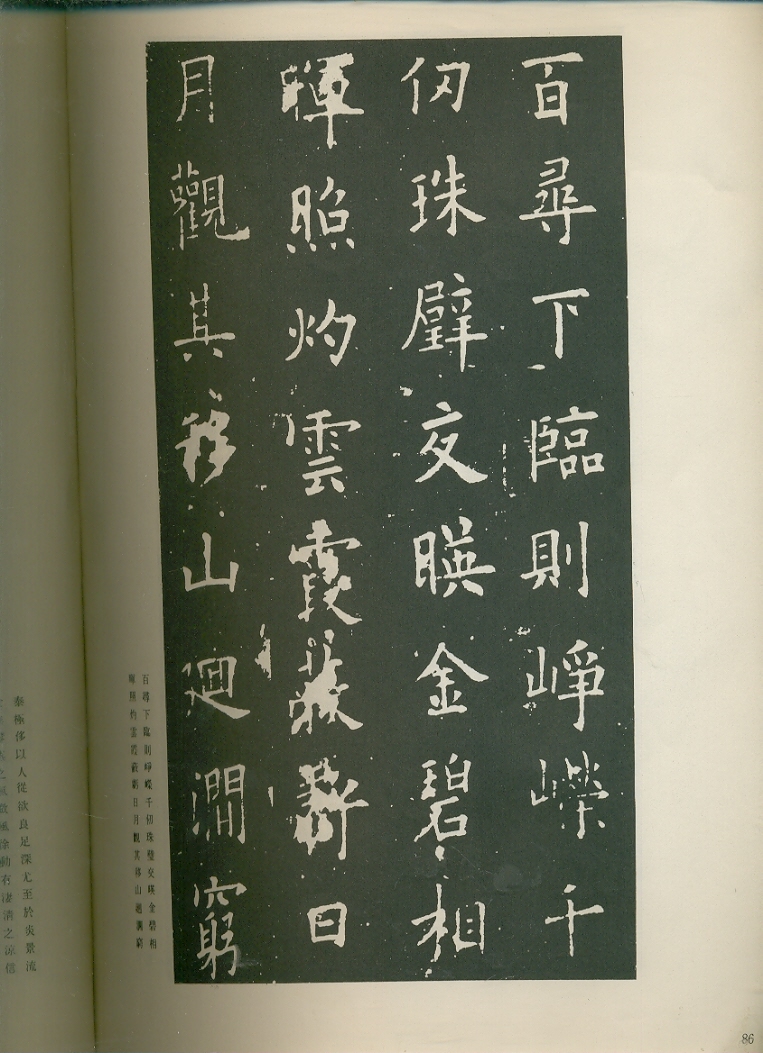 百尋下臨則崢嶸千
仞珠璧交暎金碧相
暉照灼雲霞蔽虧日
月觀其移山迴澗窮
百尋下臨則崢嶸千仞珠璧交暎金碧相
暉照灼雲霞蔽虧日月觀其移山迴澗窮
泰極侈以人從欲良足深尤至於炎景流
之氣微風徐動有淒清之涼信
86